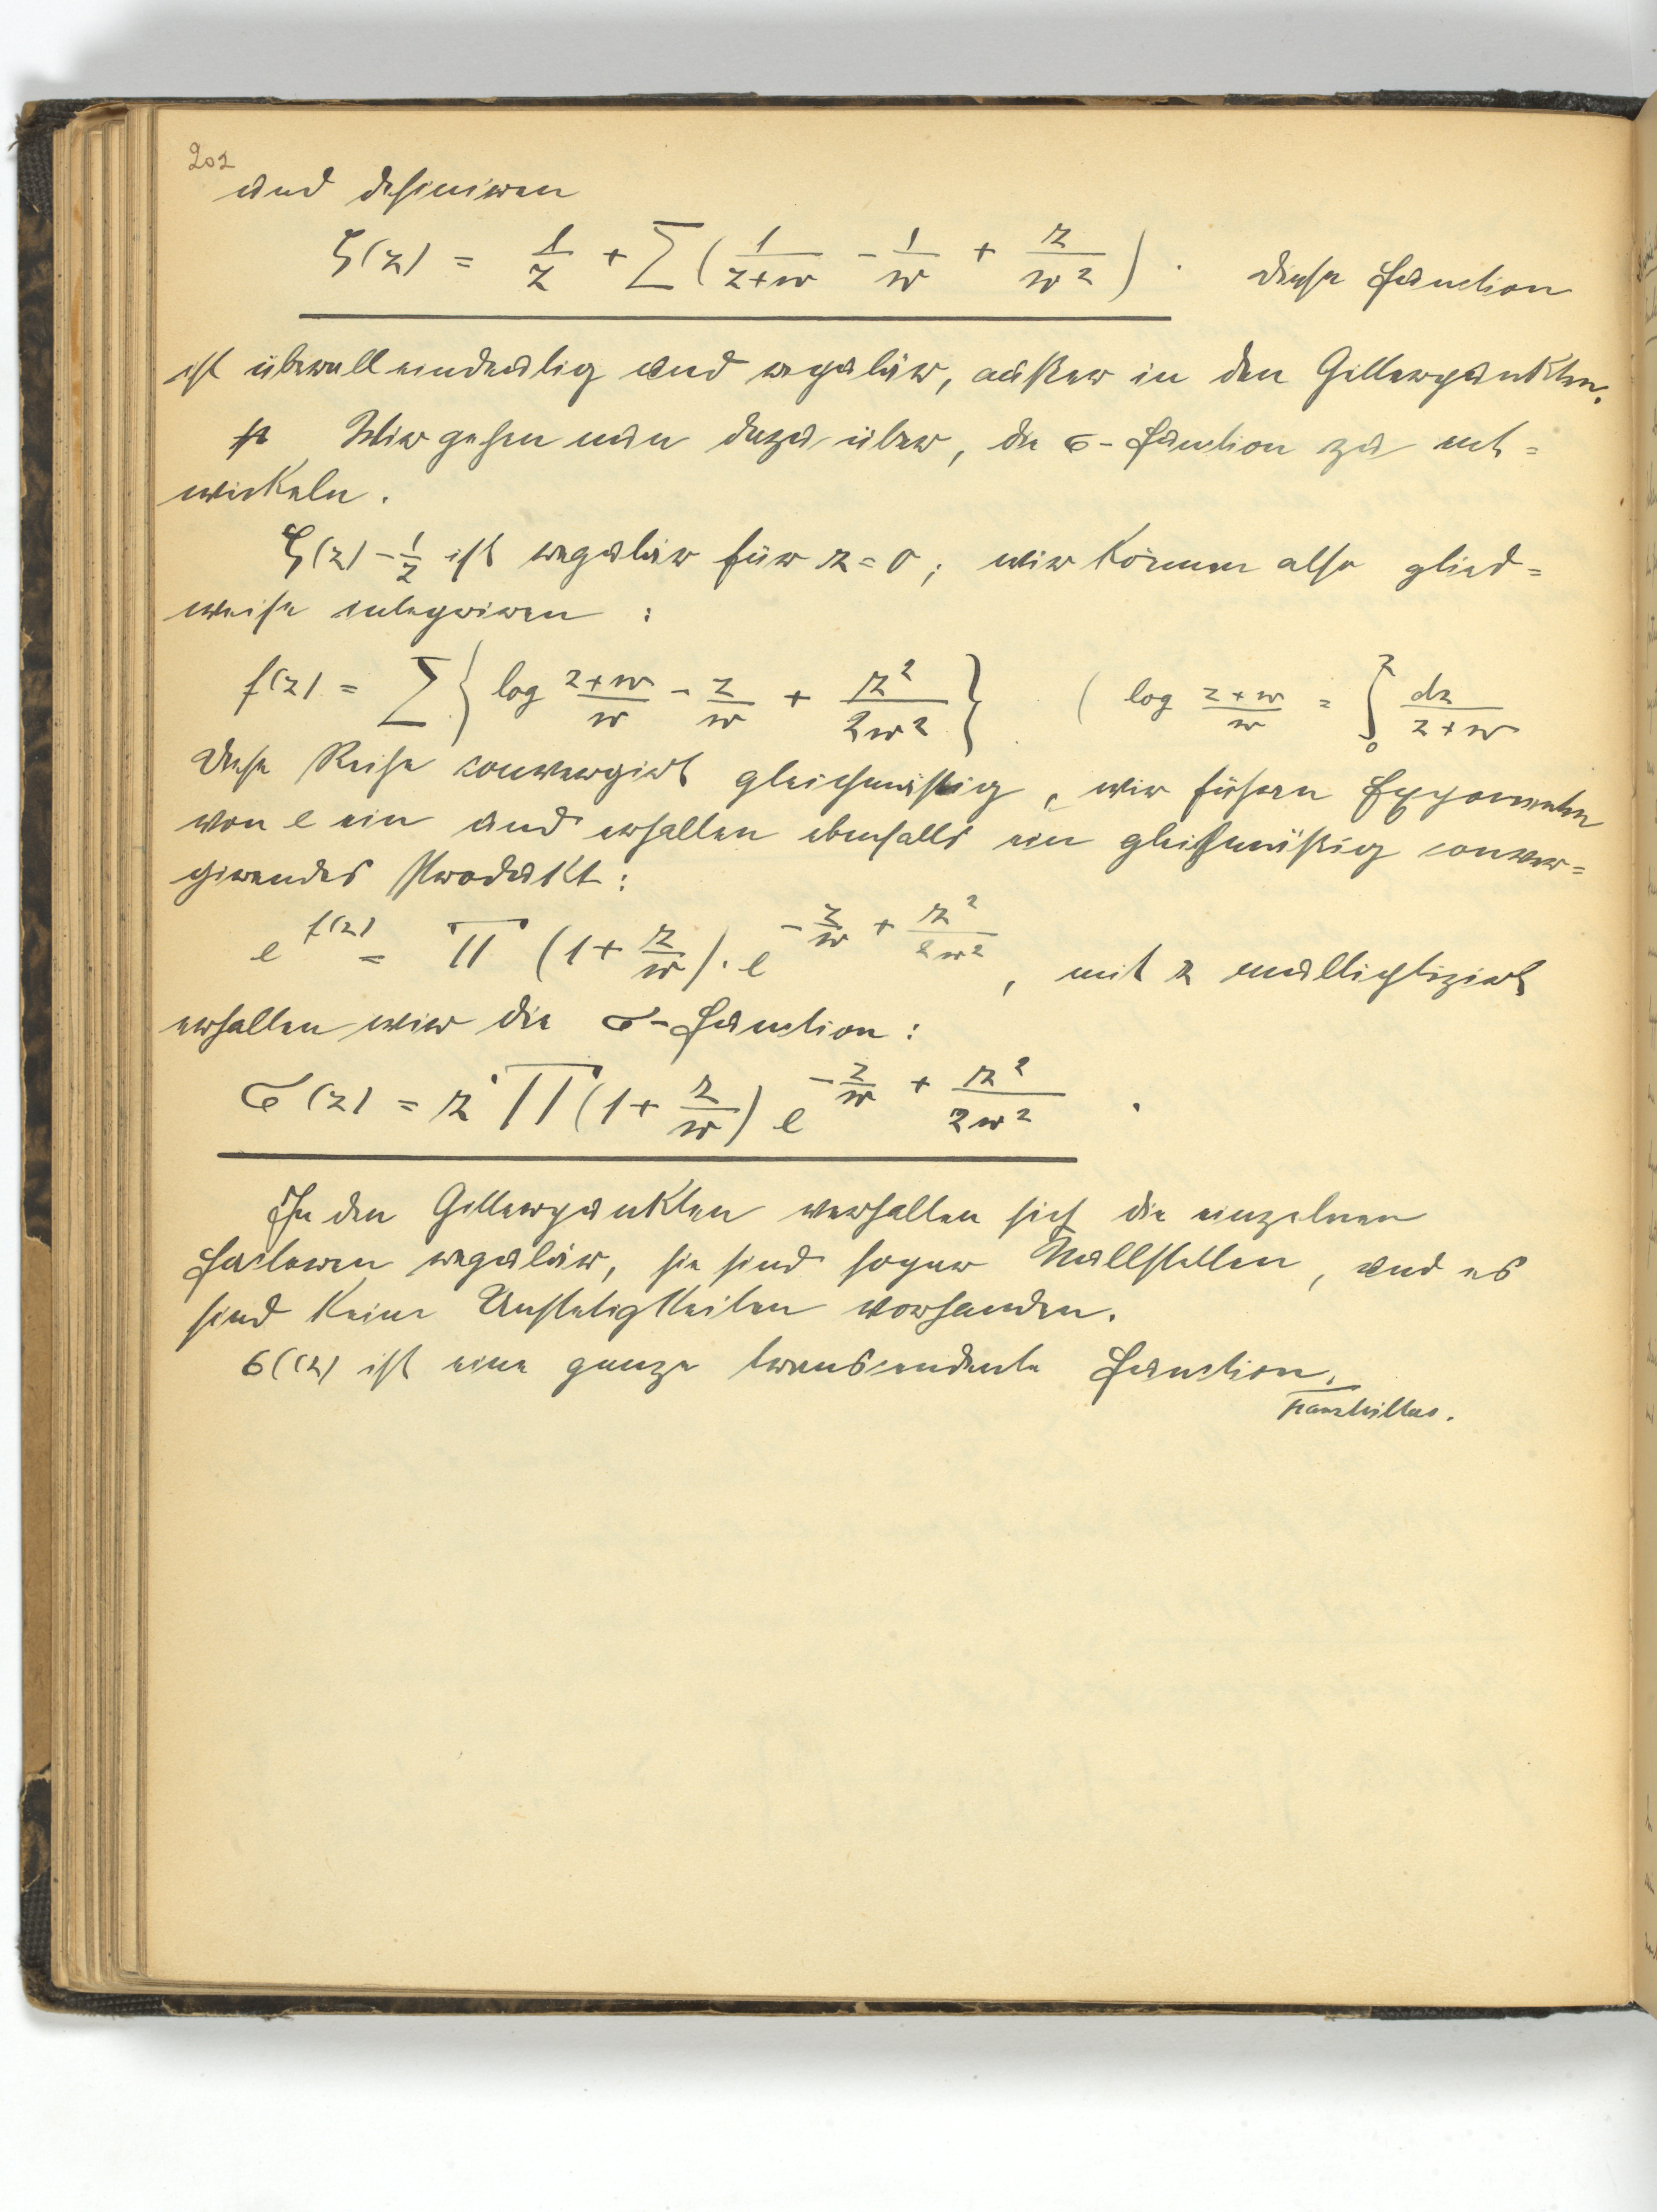 202
und definiren
ζ(z) = 1/z + ∑(1/(z+w) - 1/w + z/w²). Diese Function
ist überall eindeutig und regulär, außer in den Gitterpunkten.
Wir gehen nun dazu über, die σ-Function zu ent=
wickeln.
ζ(z) - 1/z ist regulär für z = 0; wir können also glied=
weise integriren :
f(z) = ∑{log (z+w)/w - z/w + z²/2w²} (log (z+w)/w = ∫₀ᶻ dz/(z+w)
Diese Reihe convergirt gleichmäßig, wir führen Exponenten
von e ein und erhalten ebenfalls ein gleichmäßig conver=
girendes Produkt:
e^f(z) = ∏ (1 + z/w) · e^(-z/w + z²/2w²), mit z multiplizirt
erhalten wir die σ-Function :
σ(z) = z ∏'(1 + z/w) e^(-z/w + z²/2w²) .
In den Gitterpunkten verhalten sich die einzelnen
Factoren regulär, sie sind sogar Nullstellen, und es
sind keine Unstetigkeiten vorhanden.
σ((z) ist eine ganze transcendente Function.